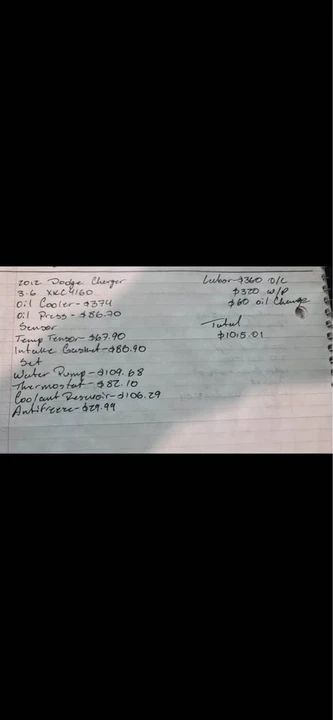 2012 Dodge Charger
3.6 XKC4160
Oil Cooler - $374
Oil Press - $86.70
Sensor
Temp Tensor - $67.90
Intake Gasket - $80.90
Set
Water Pump - $109.68
Thermostat - $82.10
Coolant Resevoir - $106.29
Antifreeze - $29.99
Labor - $360 O/C
$320 W/P
$60 oil Change
Total
$1015.01